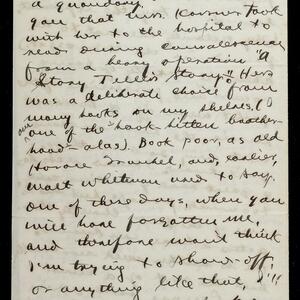 a quandary.
you that Mrs. Korner took
with her to the hospital to
read during convalescence
from a heavy operation "A
Story Teller's Story". Hers
was a deliberate choice from
many books on my shelves, (I
am
one of the book-bitten brother-
hood - alas). Book poor, as old
Horace Traubel, and, earlier,
Walt Whitman used to say.
One of these days, when you
will have forgotten me,
and therefore won't think
I'm trying to show-off,
or anything like that,